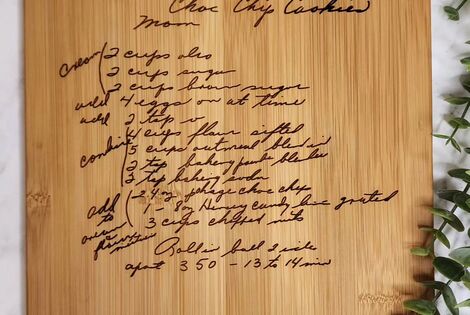 Choc Chip Cookies
Mom
cream 2 cups oleo
2 cups sugar
2 cups brown sugar
add 4 eggs on at time
add 2 tsp v
combine 4 cups flour sifted
5 cups oatmeal blended
2 tsp baking
2 tsp baking soda
add to cream mixture
2 4 oz pkage choc chex
1 - 8 oz Hersey candy bar grated
3 cups chopped nuts
Roll in ball 2 inch
apart 350 - 13 to 14 min